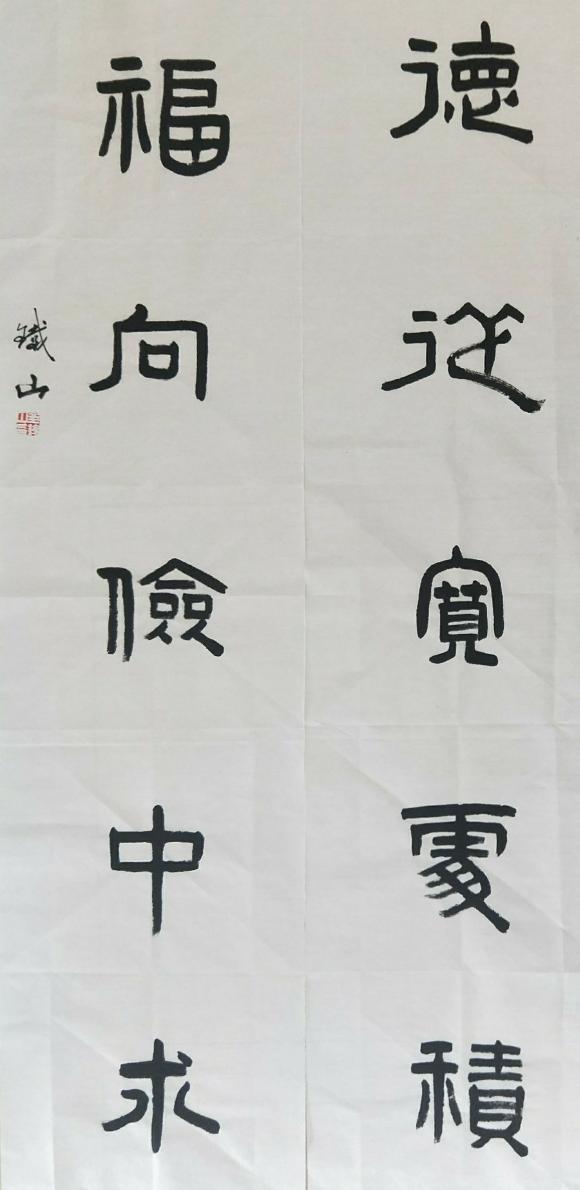 德從寬處積
福向儉中求
鐵山